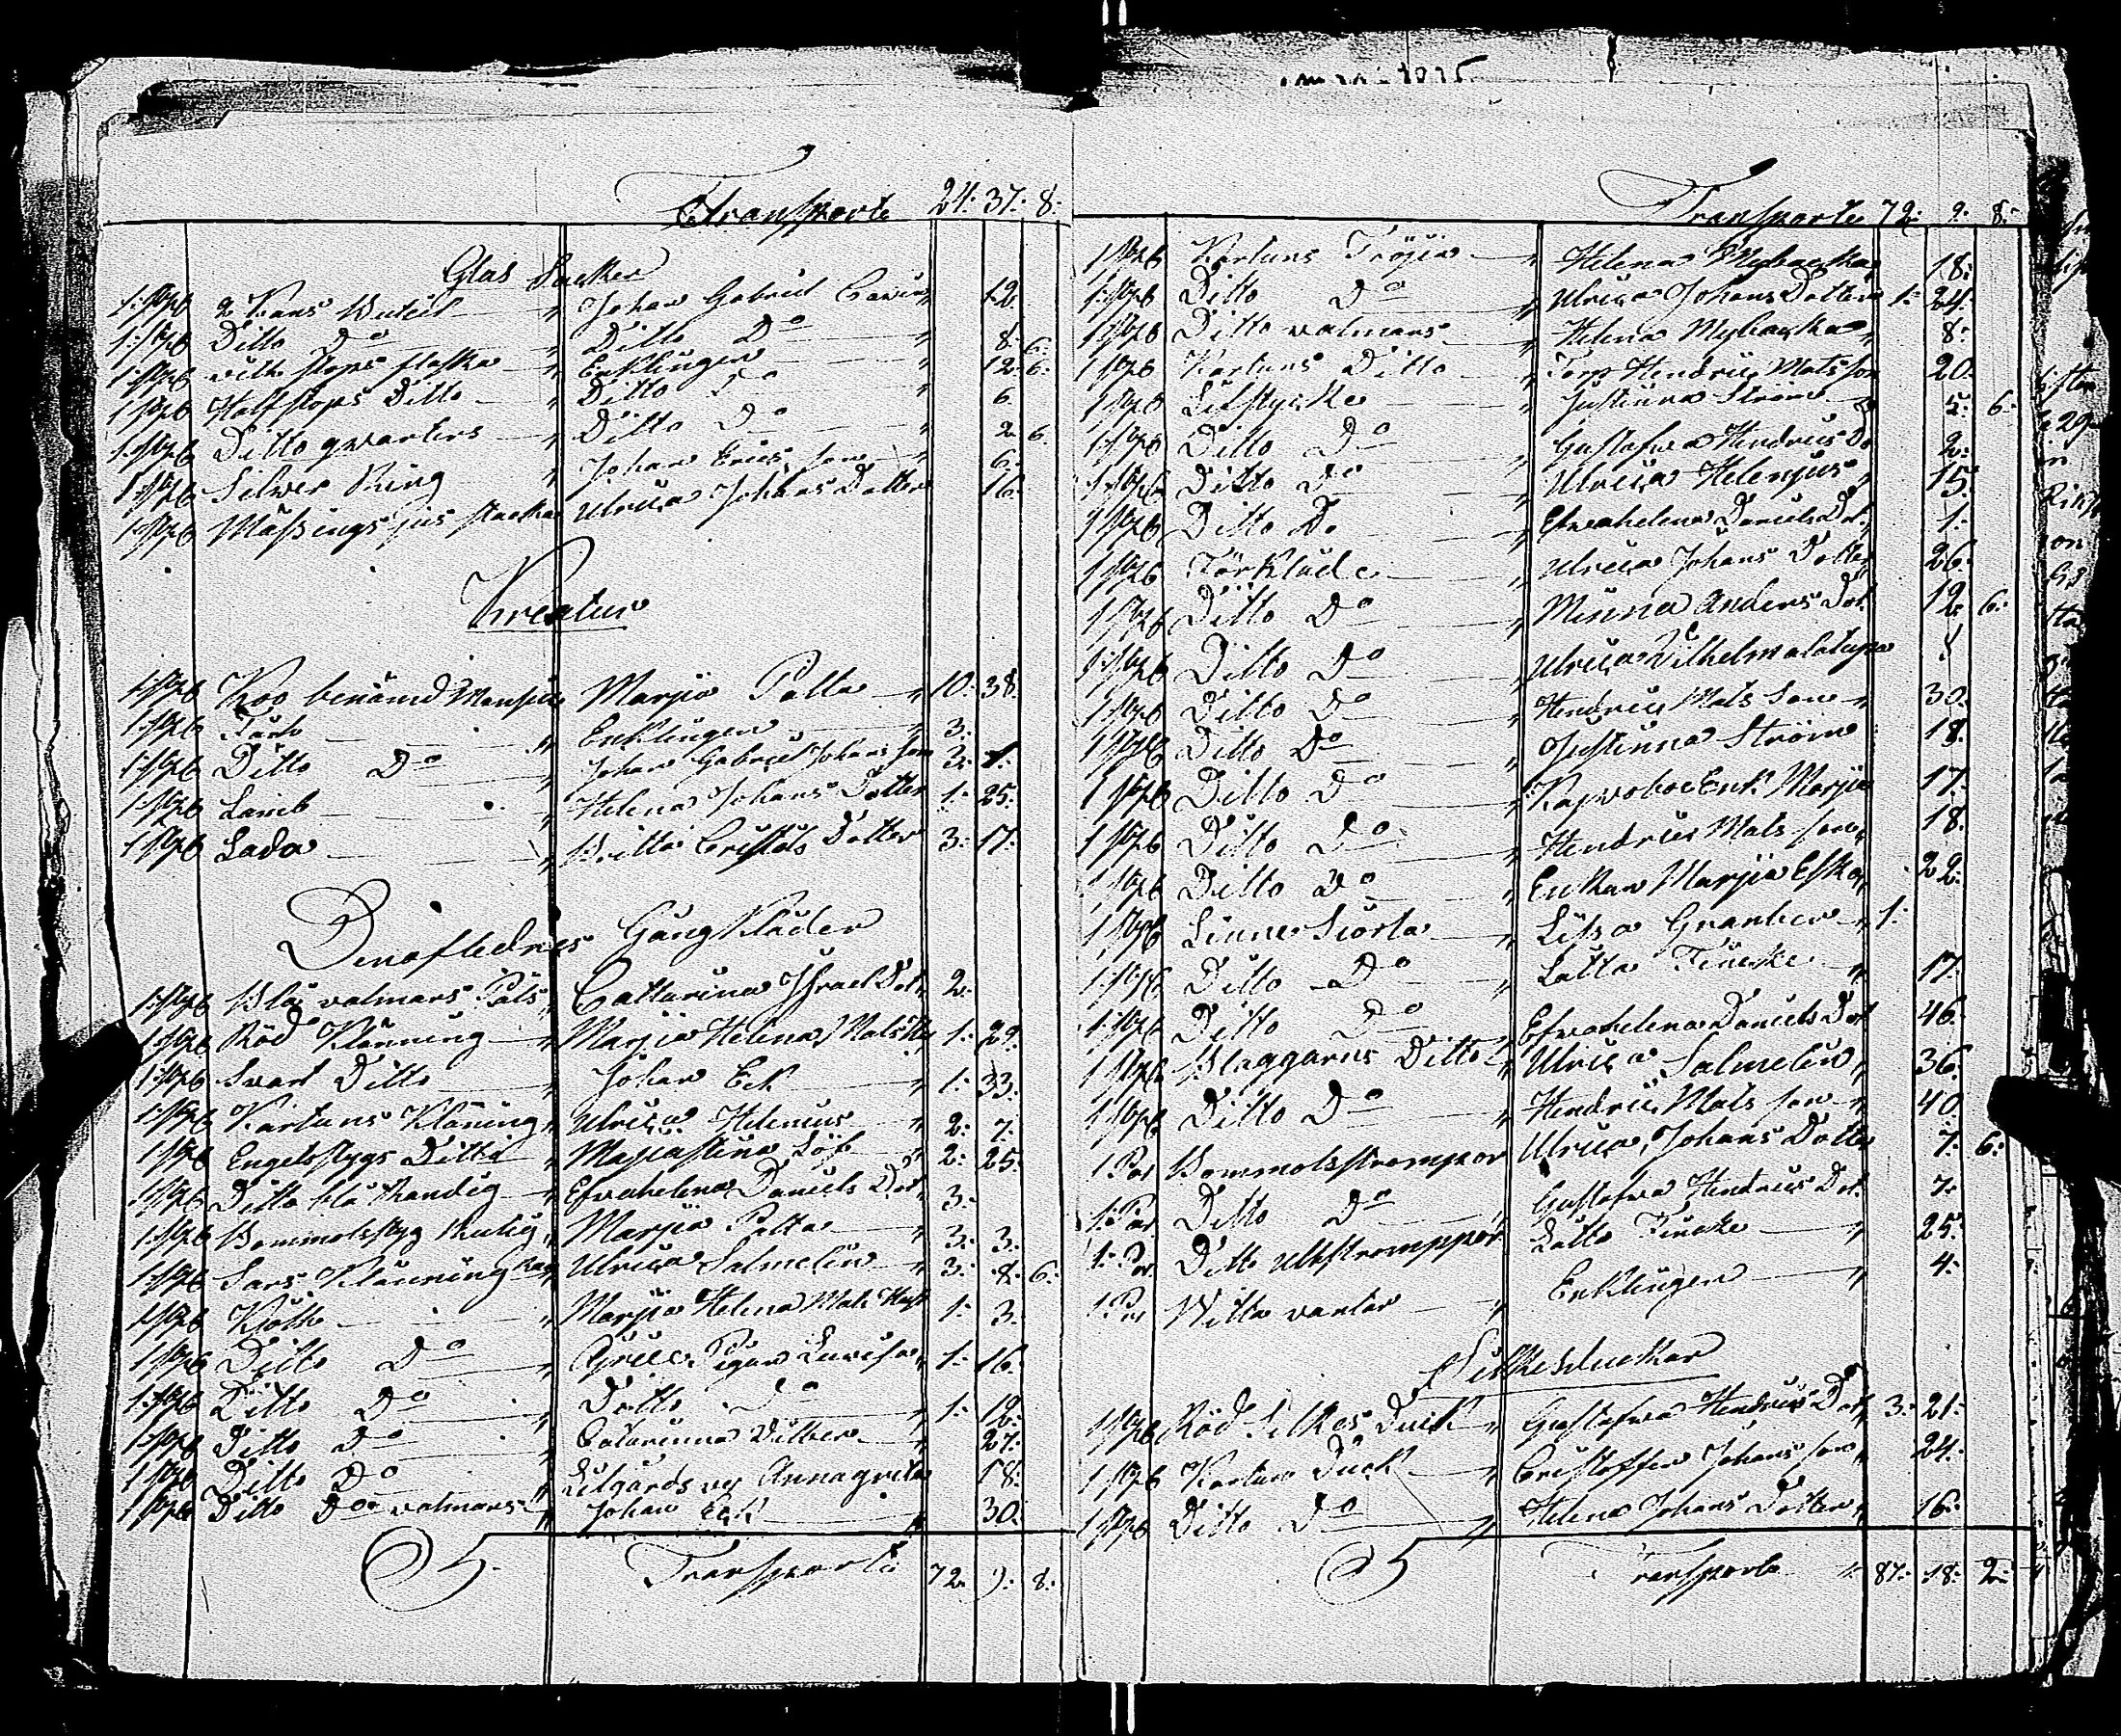 Transporte 24: 37: 8:
Glas Saker
1: styk 2 Kans Buteil " Johan Gabriel 12
1: styk Ditto Do " Ditto Do " 8: 6:
1: styk stops flaska " Enklingen " 12: 6:
1 styk Halfstops Ditto " Ditto Do " 6
1: styk Ditto qvarters " Ditto Do " 2 6
1 styk Silwer Ring " Johan Erics son " 6:
1 styk Mässings jus staaka Ulrica Johans Dotter 16:
Kreatur
1: styk Koo benämd Mansika Marjia Palta " 10: 38
1: styk Enklingen " 3:
1: styk Ditto Do " Johan Gabriel Johans son 3: 1:
1 styk Lamb " Helena Johans Dotter 1: 25:
1 styk Lada " Britta Cristäls Dotter 3: 17:
Gång Kläder
1: styk Blå valmars Päls " Cattarina Israel Dot " 2:
1 styk Röd Klänning " Marjia Helena Mats 1: 29:
1: styk Svart Ditto " Johan Eek " 1: 33:
1: styk Kartuns Kläning " Ulrica Helenius " 2: 7:
1 styk Engelsktygs Ditto " Majiastina Löf " 2: 25:
1 styk Ditto blå Randig " Efvahelena Daniels Dot " 3:
1: styk Bommolstyg Rutig " Marjia Palta " 3: 3:
1 styk Sars Klänning " Ulrica Salmelin " 3: 8: 6:
1 styk Kiolk " Marjia Helena Mats 1: 3:
1 styk Ditto Do " Pigan Lovisa " 1: 16:
1: styk Ditto Do " Ditto Do " 1: 12:
1: styk Ditto Do " Catarinna Dilber " 27:
1 styk Ditto Do " Annagreta 18:
1 styk Ditto Do valmars " Johan Eek " 30:
S. Transporte 72. 9: 8:
Transporte 72: 9: 8:
1 styk Kartuns Tröjia " Helena Nybacka " 18:
1: styk Ditto Do " Ulrica Johans Dotter 1: 24:
1 styk Ditto valmars " Helena Nybacka " 8:
1 styk Kartuns Ditto " Torp Hendric Mats son 20:
1 styk Lifstycke " Justinna Ström " 5: 6:
1: styk Ditto Do " Gustafva Hendrics Do 2:
1: styk Ditto Do " Ulrica Helenius " 15:
1 styk Ditto Do " Efvahelena Daniels Dot. 1:
1 styk Förkläde " Ulrica Johans Dotter 26:
1 styk Ditto Do " Minna Anders Dot. 12: 6:
1: styk Ditto Do " Ulrica
1 styk Ditto Do " Hendric Mats Son " 30:
1 styk Ditto Do " Justinna Ström 18:
1 styk Ditto Do " Enk. Marjia 17:
1 styk Ditto Do " Hendric Mats son " 18:
1 styk Ditto Do " Enkan Marjia Eska 22:
1 styk Linne Siorta " Lisa 1:
1 styk Ditto Do " Lotta Fincke " 17
1: styk Ditto Do " Efvahelena Daniels Dot 46:
1 styk Blaggarns Ditto " Ulrica Salmelin " 36:
1 styk Ditto Do " Hendric Mats son " 40
1 Par Bommolsstrompor Ulrica Johans Dotter 7: 6:
1: Par Ditto Do " Gustafva Hendrics Dot. 7:
1: Par Ditto Ullstromppor " Lotta Fincke " 25:
1: Par Witta vantar " Enklingen " 4:
Silkesduckar
1 styk Röd Silkes Duck " Gustafva Hendrics Dot 3: 21:
1 styk Kartun Duck " Cristoffer Johans son " 24:
1 styk Ditto Do " Helena Johans Dotter " 16:
S Transporte " 87: 18: 2: